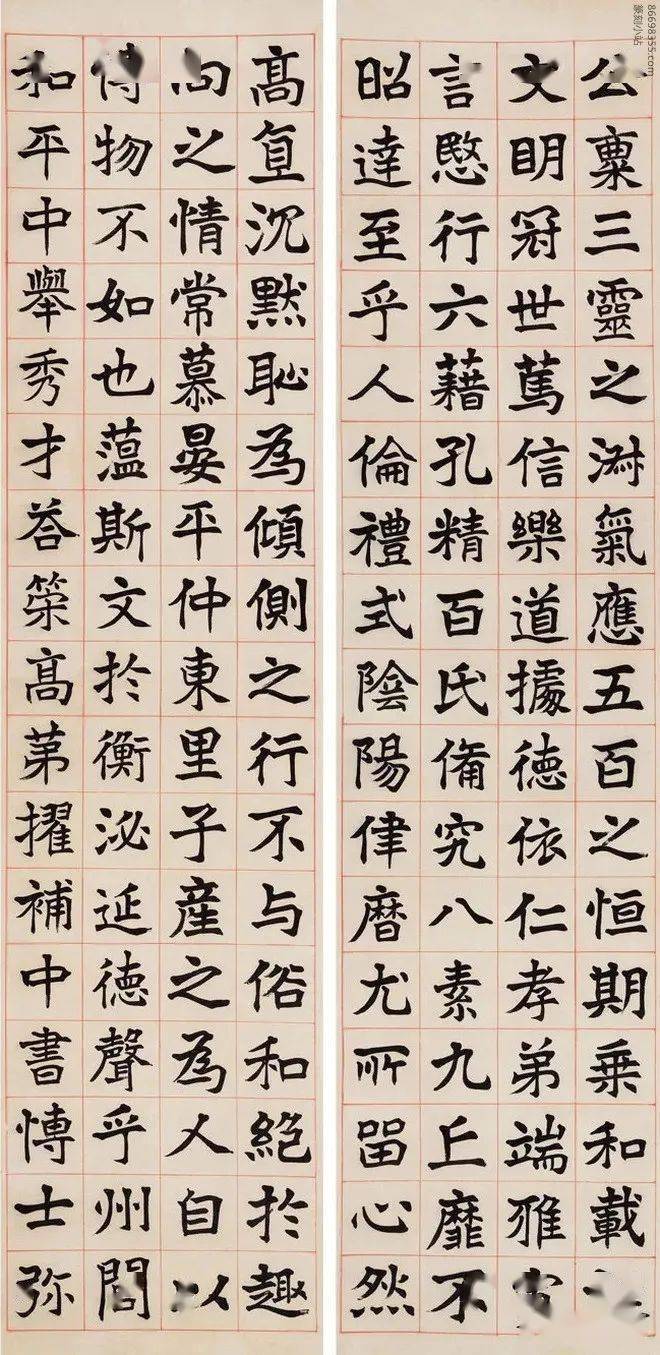 公稟三靈之淋氣應五百之恒期乗和載
文明冠世篤信樂道據德依仁孝弟端雅
言愍行六藉孔精百氏備究八素九丘靡不
昭達至乎人倫禮式陰陽律曆尤所留心然
高直沉默恥為傾側之行不与俗和絕於趣
向之情常慕晏平仲東里子產之為人自以
博物不如也蕰斯文於衡泌延德聲乎州閭
和平中舉秀才荅策高苐擢補中書博士弥
篆刻小站
86698355.com